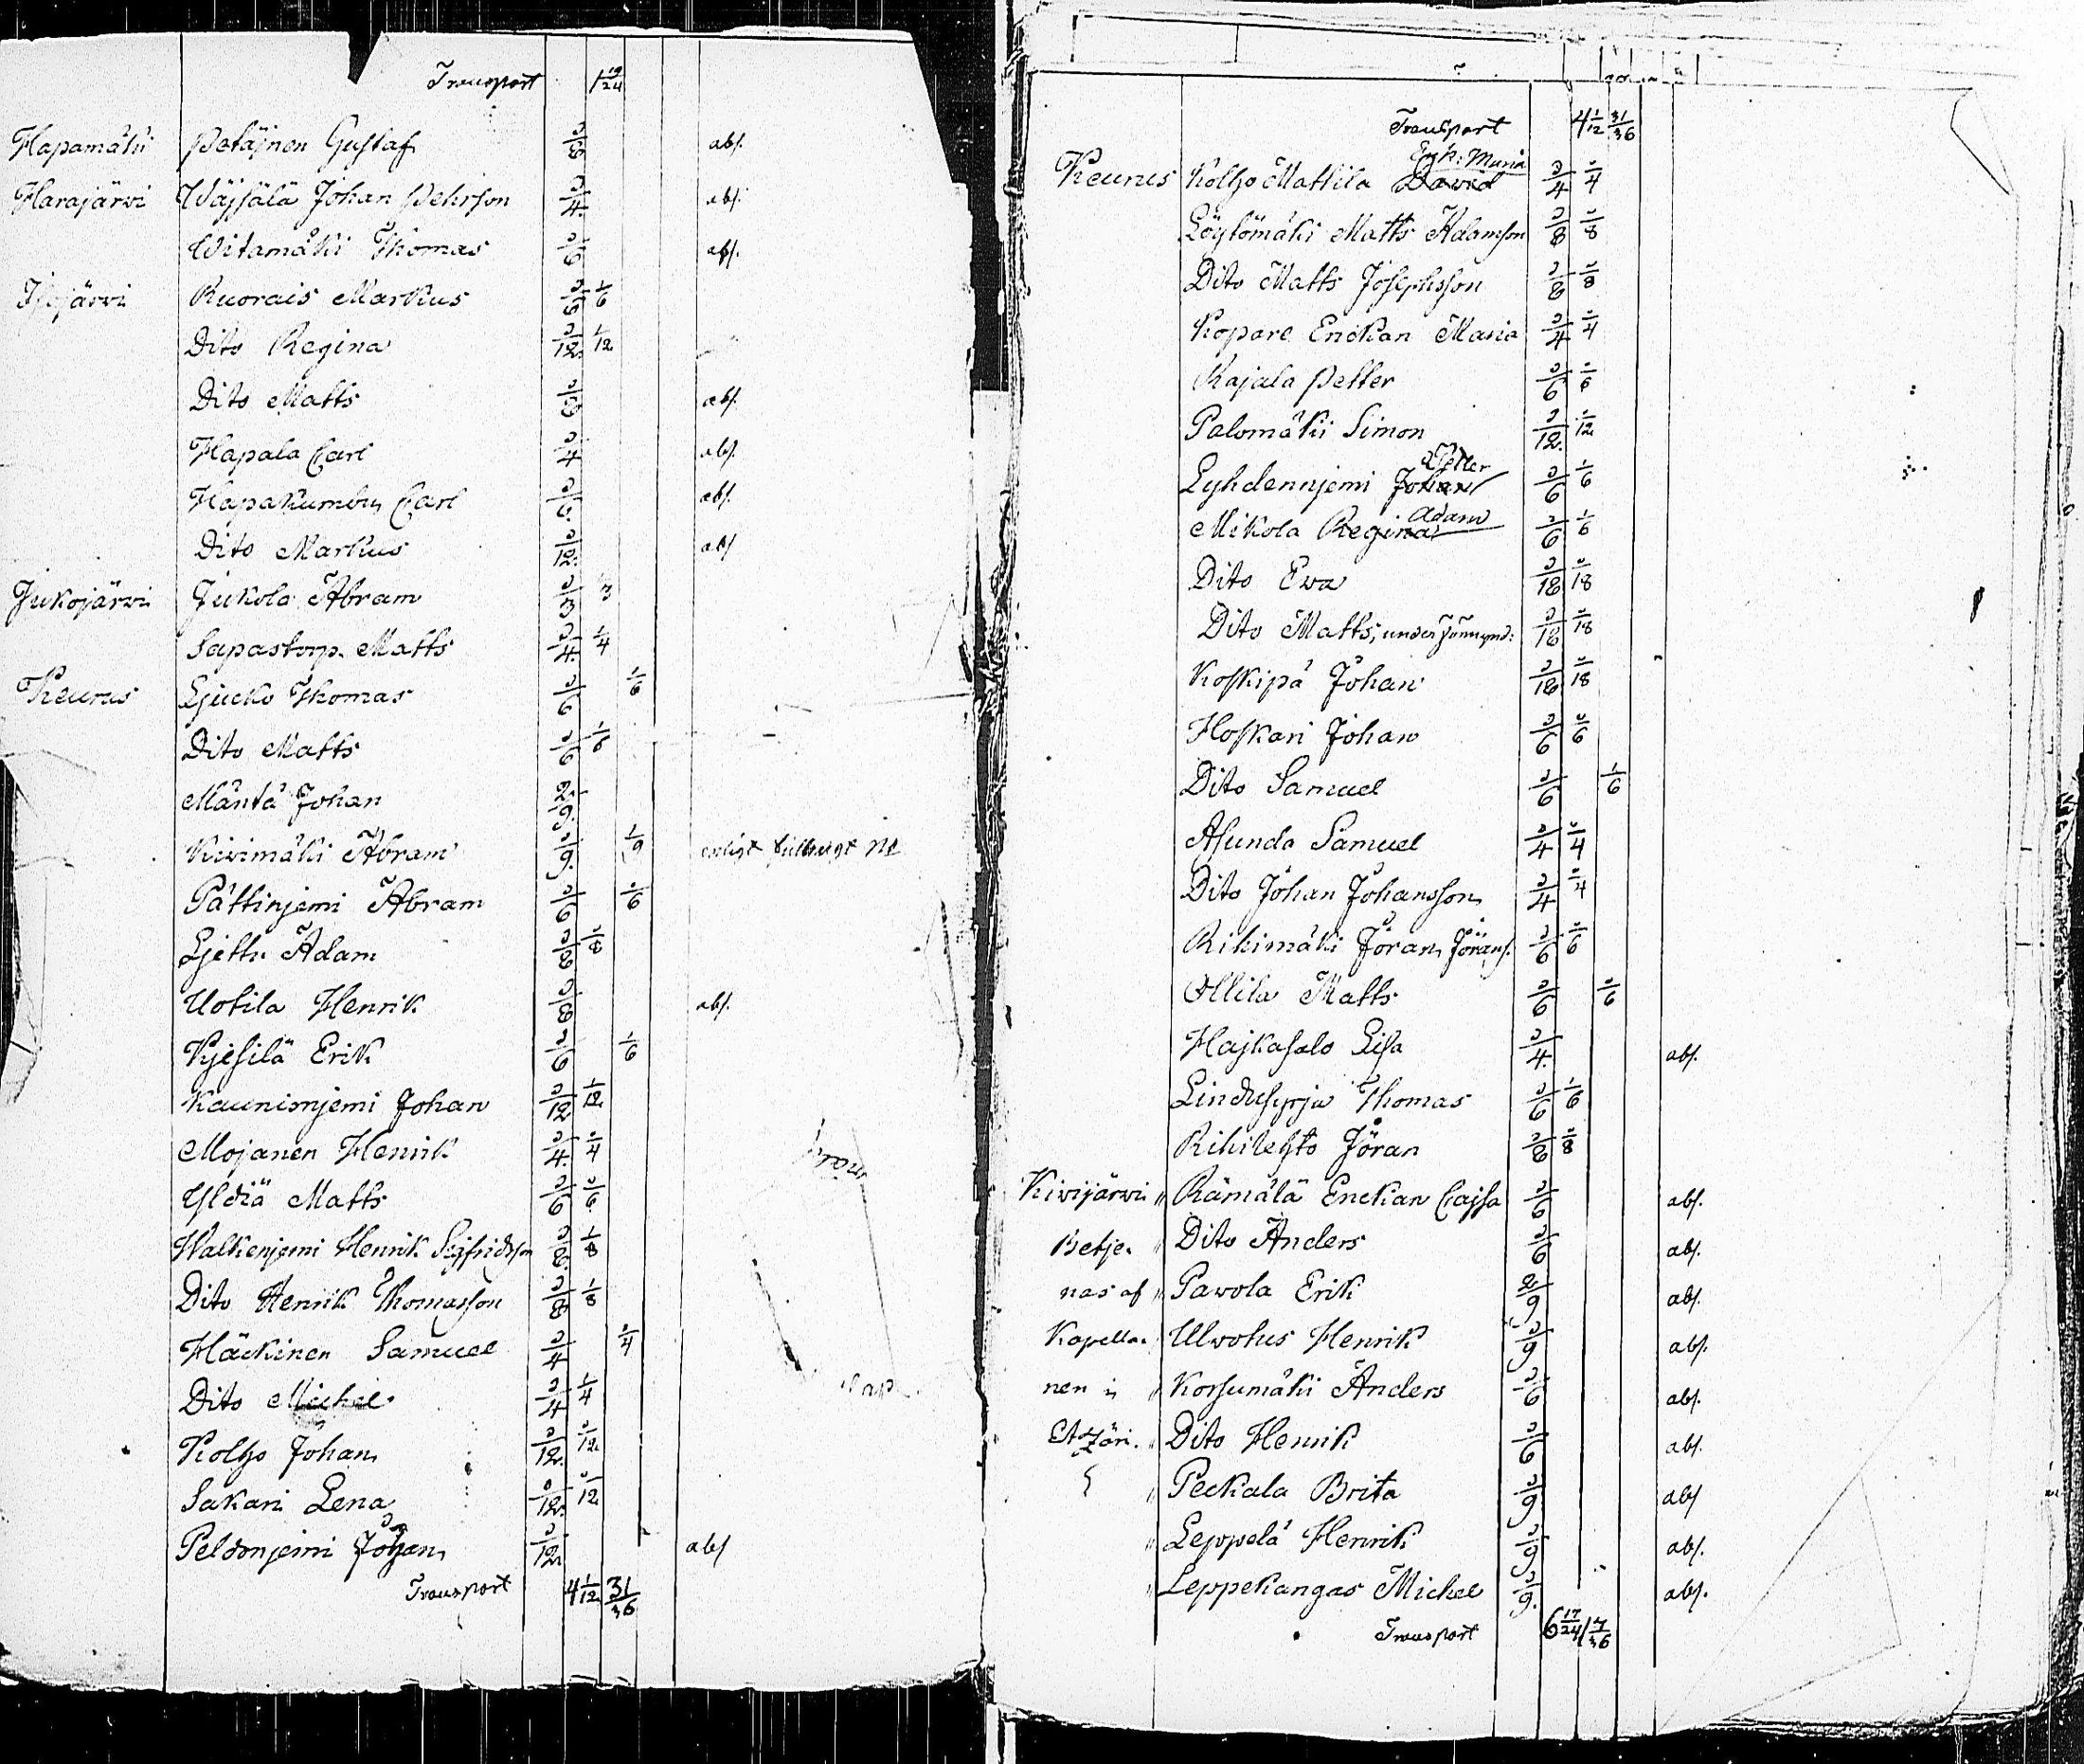 Transport 1 19/24
Hapamäki Petäjnen Gustaf 1/6 abs.
Harajärvi Wäjsälä Johan Pehrson 1/4 abs.
Witamäki Thomas 1/6 abs.
Ruorais Markus 1/6 1/6
Dito Regina 1/12 1/12
Dito Matts 1/6 abs.
Hapala Carl 1/4 abs.
Carl 1/6 abs.
Dito Markus 1/12 abs
Jukojärvi Jukola Abram 1/3 1/3
Sapastorp. Matts 1/4 1/4
Keurus Ljucko Thomas 1/6 1/6
Dito Matts 1/6 1/6
Mäntä Johan 2/9
Kivimäki Abram 1/9 1/9 enligt
Pättinjemi Abram 1/6 1/6
Ljettu Adam 1/8 1/8
Uotila Henrik 1/8 abs.
Kjesilä Erik 1/6 1/6
Kaunisnjemi Johan 1/12 1/12
Mojanen Henrik 1/4 1/4
Yldiä Matts 1/6 1/6
Walkenjemi Henrik Sigfridsson 1/8 1/8
Dito Henrik Thomasson 1/8 1/8
Häckinen Samuel 1/4 1/4
Dito Michel 1/4 1/4
Kolho Johan 1/12 1/12
Sakari Lena 1/12 1/12
Peldonjemi Johan 1/12 abs
Transport 4 1/12 31/36
Transport 4 1/12 31/36
Enk: Maria
Keurus Kolho Mattila David 1/4 1/4
Löytömäki Matts Adamson 1/8 1/8
Dito Matts Josephsson 1/8 1/8
Kopare Enckan Maria 1/4 1/4
Kajala Petter 1/6 1/6
Palomäki Simon 1/12 1/12
Petter
Lyhdennjemi Johan 1/6 1/6
Adam
Mikola Regina 1/6 1/6
Dito Ewa 1/18 1/18
Dito Matts, under förmynd: 1/18 1/18
Koskipä Johan 1/18 1/18
Hoskari Johan 1/6 1/6
Dito Samuel 1/6 1/6
Asunda Samuel 1/4 1/4
Dito Johan Johansson 1/4 1/4
Rihimäki Jöran Jörans. 1/6 1/6
Ollila Matts 1/6 1/6
Hajkasalo Lisa 1/4 abs.
Thomas 1/6 1/6
Rihilehto Jöran 1/8 1/8
Kivijärvi " Rämälä Enckan Cajsa 1/6 abs.
Betje- " Dito Anders 1/6 abs.
nas af " Pavola Erik 2/9 abs.
Kapella- Ulvotus Henrik 1/9 abs.
nen i " Korsumäki Anders 1/6 abs.
Etzäri. " Dito Henrik 1/6 abs.
" Peckala Brita 1/9 abs
" Leppelä Henrik 1/9 abs.
" Leppekangas Michel 1/9 abs.
Transport 6 17/24 1 7/36